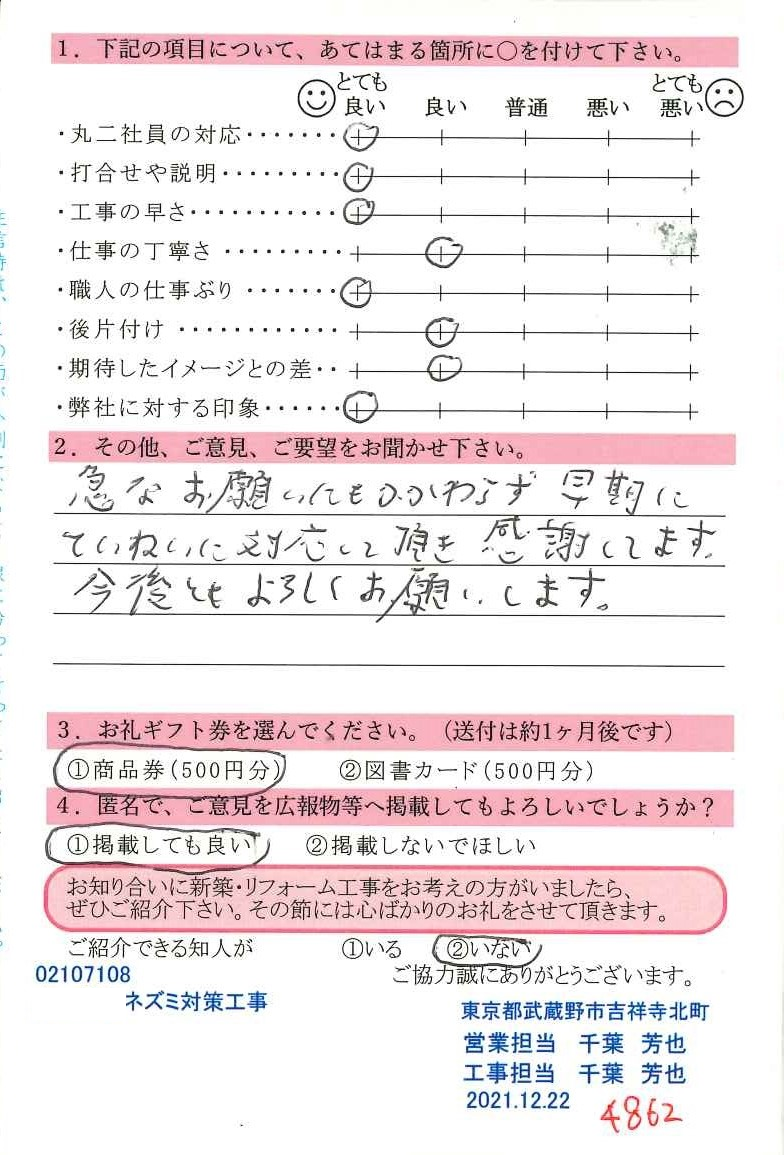 1．下記の項目について、あてはまる箇所に○を付けて下さい。
とても良い 良い 普通 悪い とても悪い
・丸二社員の対応・・・・・・・
・打合せや説明・・・・・・・・・
・工事の早さ・・・・・・・・・・・
・仕事の丁寧さ・・・・・・・・・
・職人の仕事ぶり・・・・・・・
・後片付け・・・・・・・・・・・・
・期待したイメージとの差・・
・弊社に対する印象・・・・・・
2．その他、ご意見、ご要望をお聞かせ下さい。
急なお願いにもかかわらず 早期に
ていねいに対応して頂き 感謝してます。
今後ともよろしくお願いします。
3．お礼ギフト券を選んでください。（送付は約1ヶ月後です）
①商品券（500円分） ②図書カード（500円分）
4．匿名で、ご意見を広報物等へ掲載してもよろしいでしょうか？
①掲載しても良い ②掲載しないでほしい
お知り合いに新築・リフォーム工事をお考えの方がいましたら、
ぜひご紹介下さい。その節には心ばかりのお礼をさせて頂きます。
ご紹介できる知人が ①いる ②いない
ご協力誠にありがとうございます。
02107108
ネズミ対策工事
東京都武蔵野市吉祥寺北町
営業担当 千葉 芳也
工事担当 千葉 芳也
2021.12.22
4862